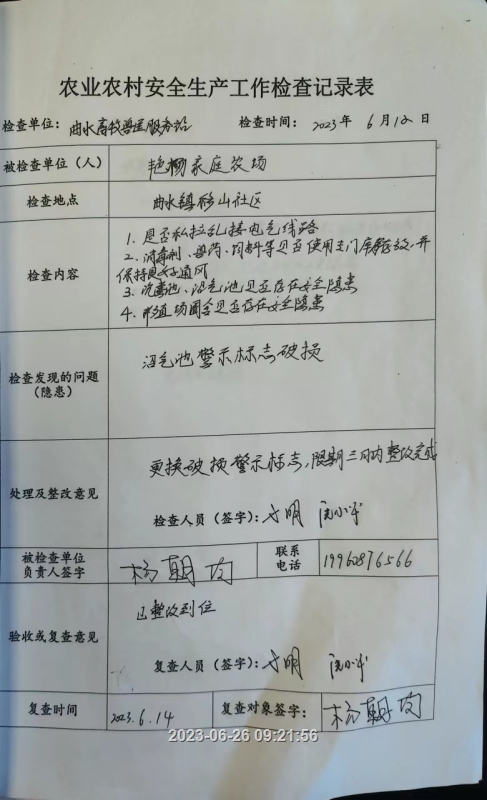 农业农村安全生产工作检查记录表
检查单位：曲水畜牧兽医服务站 检查时间：2023年6月12日
被检查单位（人） 艳杨家庭农场
检查地点 曲水镇移山社区
检查内容
1. 是否私拉乱接电气线路
2. 消毒剂、兽药、饲料等是否使用专门库房存放，并
保持良好通风
3. 沉粪池、沼气池是否存在安全隐患
4. 养殖场圈舍是否存在安全隐患
检查发现的问题
（隐患）
沼气池警示标志破损
处理及整改意见
更换破损警示标志，限期三日内整改完成
检查人员（签字）：
被检查单位
负责人签字
杨朝均
联系
电话
19960876566
验收或复查意见
已整改到位
复查人员（签字）：
复查时间 2023.6.14 复查对象签字：杨朝均
2023-06-26 09:21:56